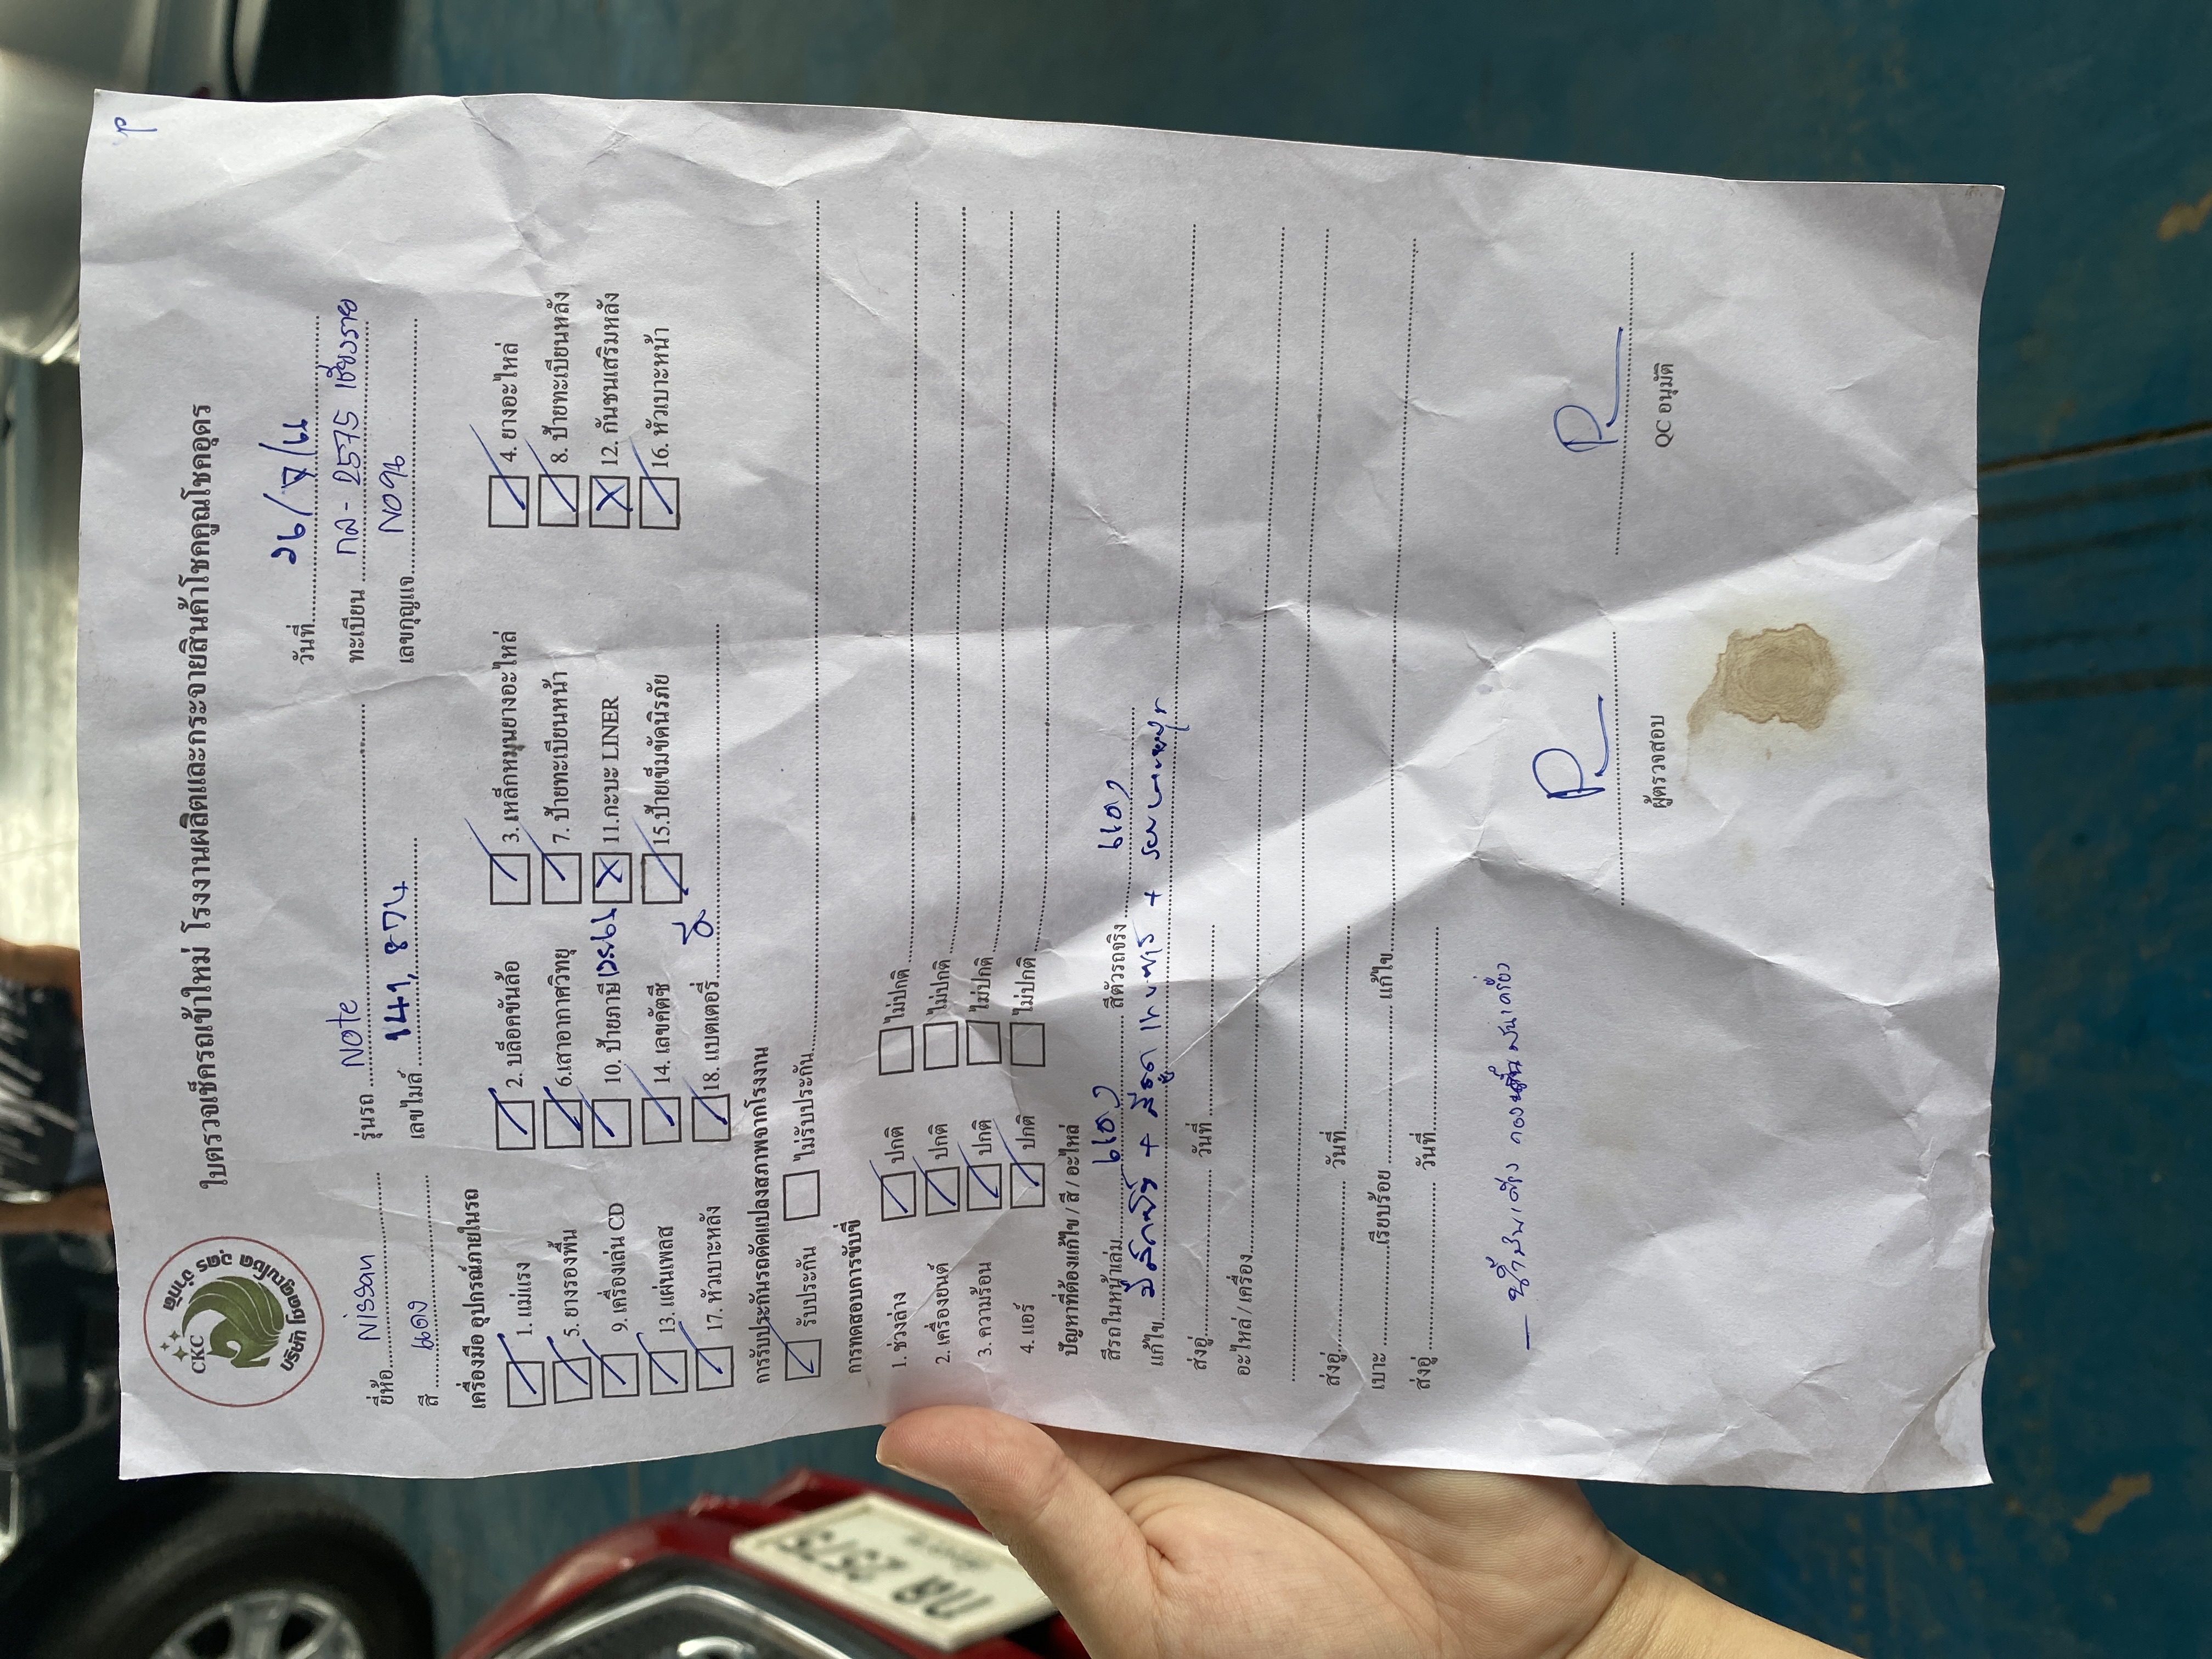 CKC
บริษัท โชคคูณโชค อุดร จำกัด
ใบตรวจเช็ครถเข้าใหม่ โรงงานผลิตและกระจายสินค้าโชคคูณโชคอุดร
วันที่
ยี่ห้อ Nissan รุ่นรถ Note ทะเบียน กล - 2575 เชียงราย
สี แดง เลขไมล์ 141,874 เลขกุญแจ
เครื่องมือ อุปกรณ์ภายในรถ
1. แม่แรง 2. บล็อคขันล้อ 3. เหล็กหมุนยางอะไหล่ 4. ยางอะไหล่
5. ยางรองพื้น 6.เสาอากาศวิทยุ 7. ป้ายทะเบียนหน้า 8. ป้ายทะเบียนหลัง
9. เครื่องเล่น CD 10. ป้ายภาษี 11.กะบะ LINER 12. กันชนเสริมหลัง
13. แผ่นเพลส 14. เลขคัตซี 15.ป้ายเข็มขัดนิรภัย 16. หัวเบาะหน้า
17. หัวเบาะหลัง 18. แบตเตอรี่
การรับประกันรถดัดแปลงสภาพจากโรงงาน
รับประกัน ไม่รับประกัน
การทดสอบการขับขี่
1. ช่วงล่าง ปกติ ไม่ปกติ
2. เครื่องยนต์ ปกติ ไม่ปกติ
3. ความร้อน ปกติ ไม่ปกติ
4. แอร์ ปกติ ไม่ปกติ
ปัญหาที่ต้องแก้ไข / สี / อะไหล่
สีรถในหน้าเล่ม แดง สีตัวรถจริง แดง
แก้ไข
ส่งอู่ วันที่
อะไหล่ / เครื่อง
ส่งอู่ วันที่
เบาะ เรียบร้อย แก้ไข
ส่งอู่ วันที่
ผู้ตรวจสอบ QC อนุมัติ
กล 2575
เชียงราย